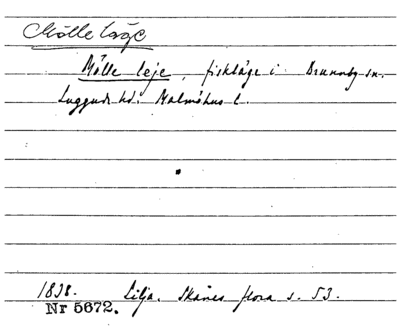 Mölle läge
Mölle leje, fiskläge i Brunnby sn.
Luggude hd. Malmöhus l.
1838. Lilja. Skånes flora s. 53.
Nr 5672.